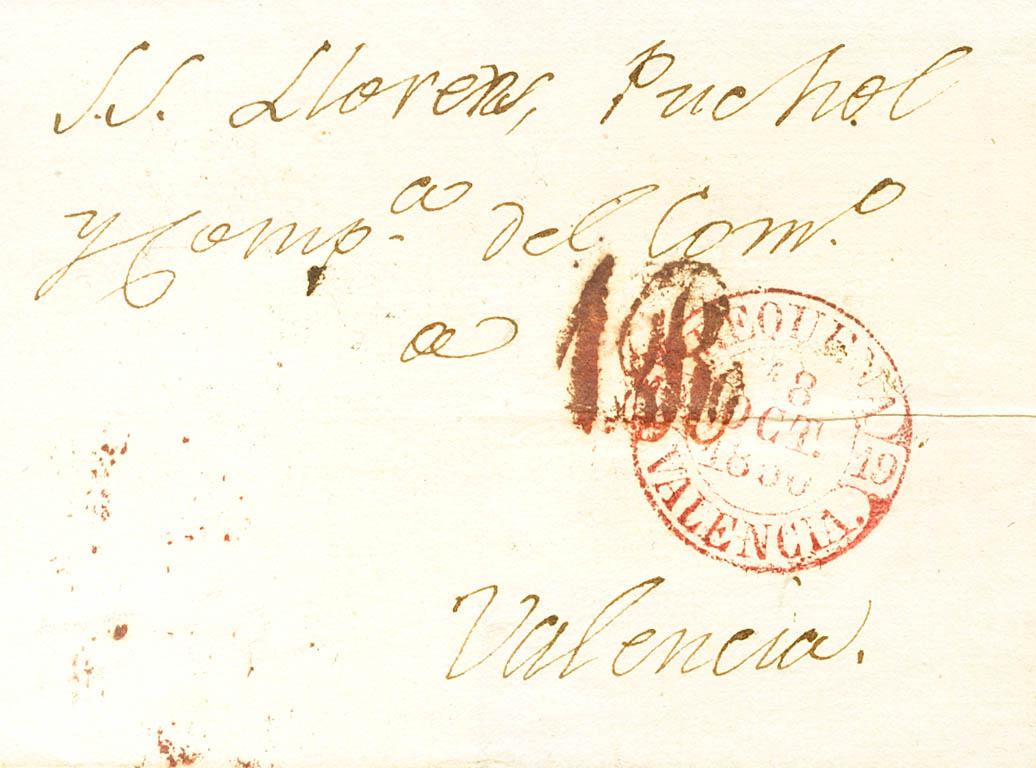 S.S. Llorens, Puchol
y Comp.ª del Com.º
a
1R.
REQUENA
8
OCT.
19
VALENCIA.
Valencia.